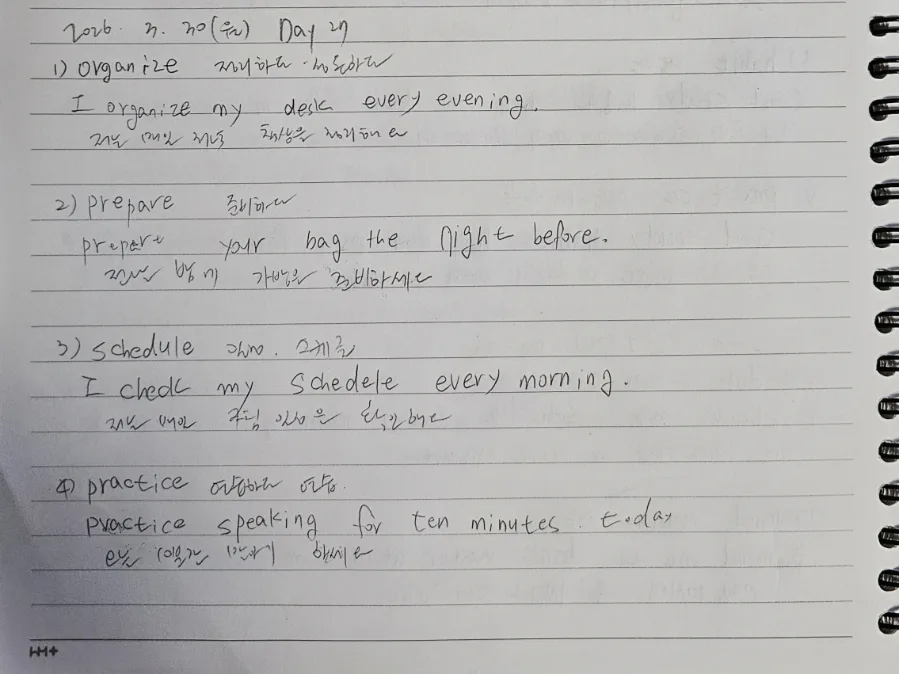 2026. 3. 30(월) Day 27
1) organize 정리하다. 정돈하다
I organize my desk every evening.
저는 매일 저녁 책상을 정리해요
2) prepare 준비하다
prepare your bag the night before.
전날 밤에 가방을 준비하세요
3) schedule 일정.
I check my schedele every morning.
저는 매일 일정을 확인해요
4) practice 연습하다 연습.
practice speaking for ten minutes. today
오늘 10분간 하세요